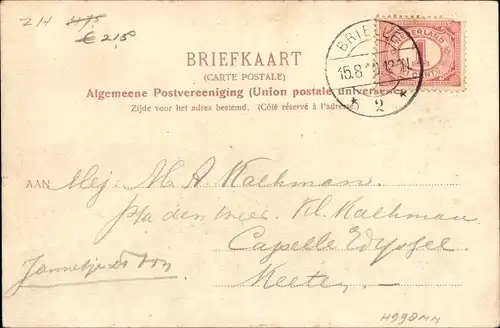 ZH 4,75
€ 2,50
BRIEFKAART
(CARTE POSTALE)
Algemeene Postvereeniging (Union postale universelle)
Zijde voor het adres bestemd. (Côté réservé à l'adresse)
BRIELLE
15.8 12N
* 2 *
NEDERLAND
1
CENT
AAN Mej: M. A. Kalkman
p/a den Heer Kl. Kalkman
Capelle
Keeten
Jannetje
4998MM